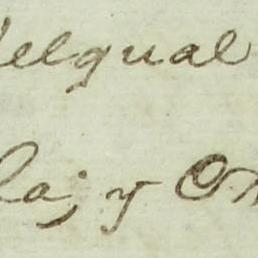 delqual
la; y On